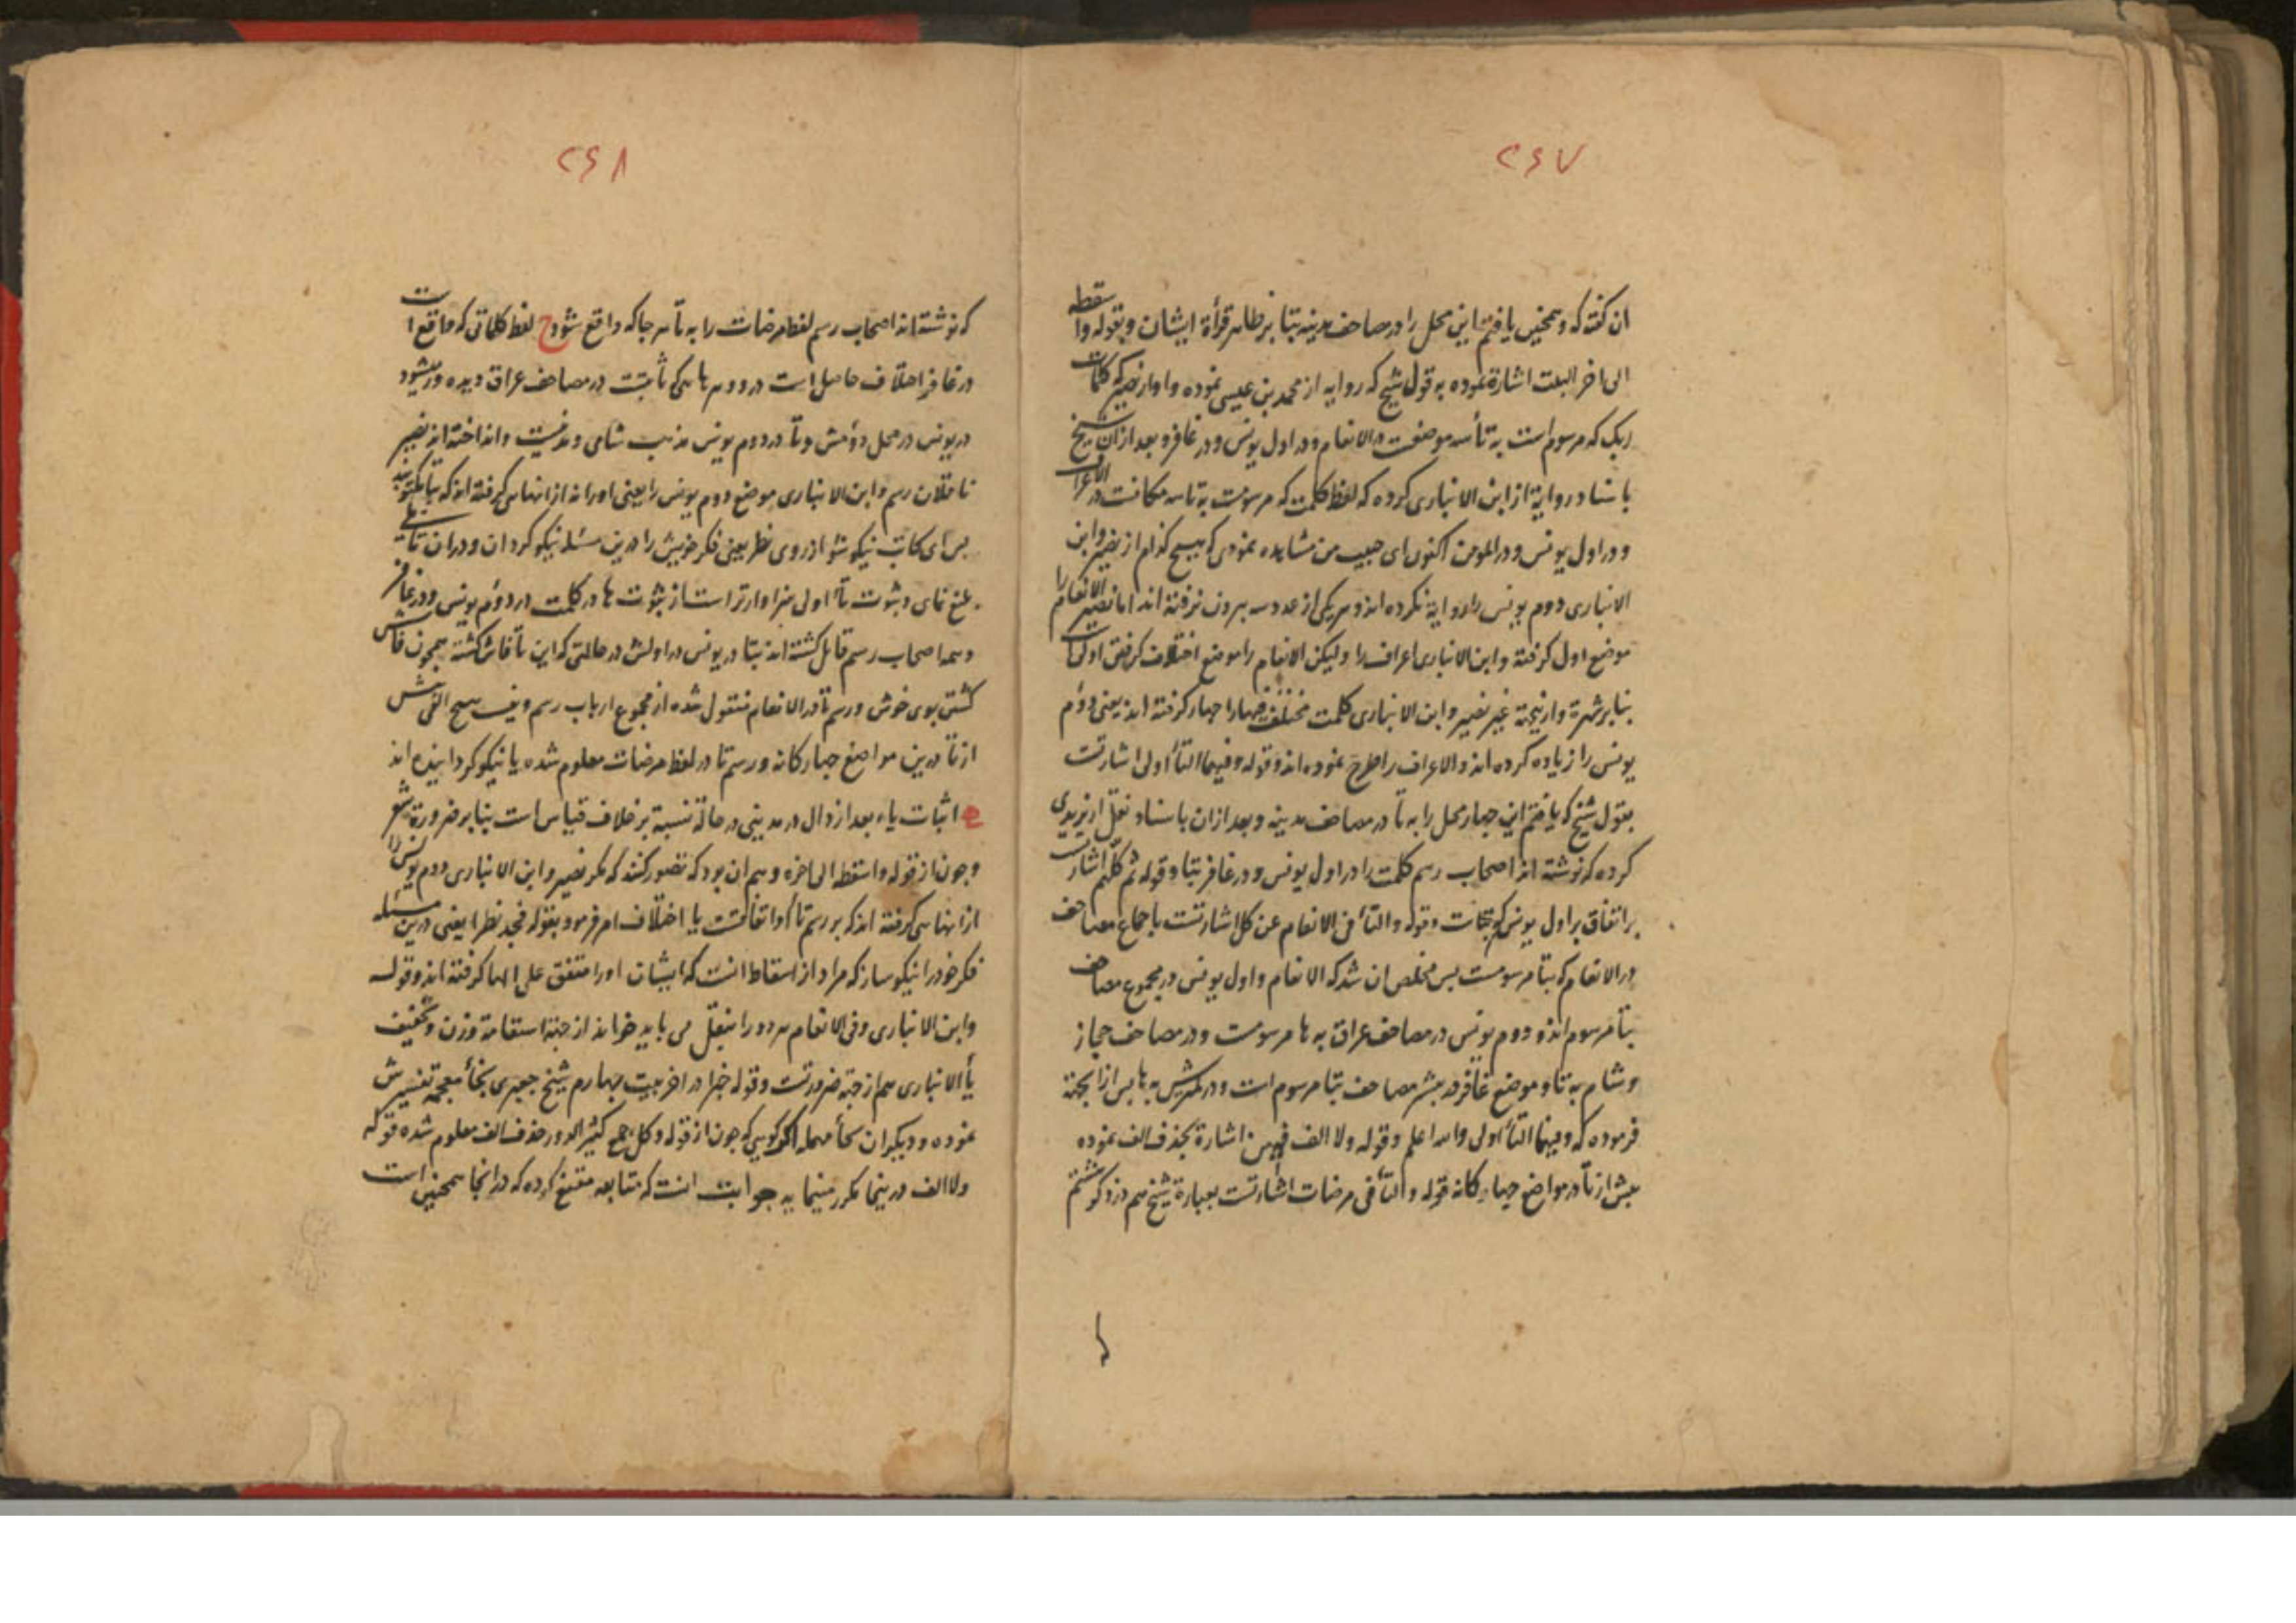 ۲۶۷
ان گفته که و همچنین یافتم این محل را در مصاحف مدینه بتا بر ظاهر قرأة ایشان و بقوله واسقطه
الی اخر البیت اشارة نموده به قول شیخ که روایه از محمد بن عیسی نموده و او از نصیر که کلمات
ربک که مرسوم است به تا سه موضعست در الانعام و در اول یونس و در غافر و بعد از ان شیخ
باسناد روایة از ابن الانباری کرده که لفظ کلمت که مرسومست به تا سه مکانست در الاعراف
و در اول یونس و در المومن اکنون ای حبیب من مشاهده نمودی که هیچ کدام از نصیر و ابن
الانباری دوم یونس را روایة نکرده اند و هر یکی از عدد سه بیرون نرفته اند اما نصیر الانعام را
موضع اول گرفته و ابن الانباری اعراف را ولیکن الانعام را موضع اختلاف گرفتن اولی است
بنابر شهرة و از نیجة غیر نصیر و ابن الانباری کلمت مختلف فیها را چهار گرفته اند یعنی دوم
یونس را زیاده کرده اند و الاعراف را طرح نموده اند و قوله و فیهما التأ اولی اشارتست
بقول شیخ که یافتم این چهار محل را به تا در مصاحف مدینه و بعد از ان باسناد نقل از یزیدی
کرده که نوشته اند اصحاب رسم کلمت را در اول یونس و در غافر بتا و قوله ثم کلهم اشارتست
بر اتفاق بر اول یونس که بتاست و قوله و التأ فی الانعام عن کل اشارتست باجماع مصاحف
در الانعام که بتا مرسومست بس مخلص ان شد که الانعام و اول یونس در مجموع مصاحف
بتا مرسوم اند و دوم یونس در مصاحف عراق به ها مرسومست و در مصاحف حجاز
و شام به تا و موضع غافر در بیشتر مصاحف بتا مرسوم است و در کمترش به ها بس از انجهة
فرموده که و فیهما التأ اولی والله اعلم و قوله ولا الف فیهن اشارة بحذف الف نموده
بیش از تا در مواضع چهارکانه قوله و التأ فی مرضات اشارتست بعبارة شیخ هم در ذکر هشتم
۲۶۸
که نوشته اند اصحاب رسم لفظ مرضات را به تا هر جا که واقع شود ح لفظ کلماتی که واقع است
در غافر اختلاف حاصل است در وو هر هاء که ثابتست در مصاحف عراق دیده ور میشود
در یونس در محل دومش و تا در دوم یونس مذهب شامی و مدنیست و انداخته اند نصیر
ناقلان رسم و ابن الانباری موضع دوم یونس را یعنی او را نه از انها می گرفته اند که بتا مکتوبند
بس ای کاتب نیکو شو از روی نظر یعنی فکر خویش را در این مسئله نیکو گردان و در ان تاملی
بلیغ نمای و ثبوت تا اولی سزاوارتر است از ثبوت ها در کلمت در دوم یونس و در غافر
و همه اصحاب رسم قایل گشته اند بتا در یونس در اولش در حالتی که این تا فاش گشته همچون فاش
گشتن بوی خوش و رسم تا در الانعام منقول شده از مجموع ارباب رسم و نیست هیچ الف پیش
از تا در این مواضع چهارکانه و رسم تا در لفظ مرضات معلوم شده یا نیکو گردانیده اند
اثبات یاء بعد از دال در مدینی در حالة نسبة بر خلاف قیاس است بنابر ضرورة شعر
و چون از قوله و اسقطه الی اخره وهم ان بود که تصور کنند که مگر نصیر و ابن الانباری دوم یونس را
از انها می گرفته اند که بر رسم تا او اتفاقست یا اختلاف امر فرمود بقوله فجد نظرا یعنی در این مسئله
فکر خود را نیکو ساز که مراد از اسقاط انست که ایشان او را متفق علی الها گرفته اند و قوله
و ابن الانباری و فی الانعام هر دو را بنقل می باید خواند از جهة استقامة وزن و تخفیف
یأ الانباری هم از جهة ضرورتست و قوله خبرا در اخر بیت چهارم شیخ جعبری بخأ معجمه تفسیرش
نموده و دیگران بحأ مهمله اگر گویی که چون از قوله و کل جمع کثیر الدور حذف الف معلوم شده قوله
ولا الف در اینجا مکرر مینماید جوابت انست که متابعه مقنع کرده که در انجا همچنین است